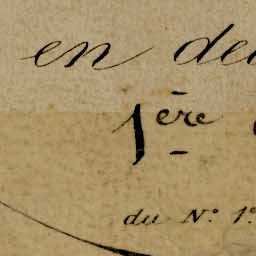 en
1ère
du N° 1°